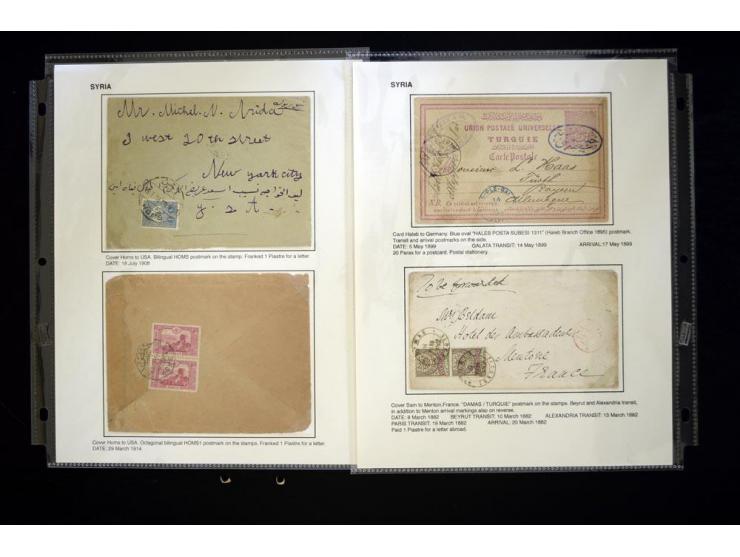 SYRIA
Mr. Michel. N. Arida
3 west 20th street
New york city
Cover Homs to USA. Bilingual HOMS postmark on the stamp. Franked 1 Piastre for a letter.
DATE: 18 July 1908
Cover Homs to USA. Octagonal bilingual HOMS1 postmark on the stamps. Franked 1 Piastre for a letter.
DATE: 29 March 1914
SYRIA
UNION POSTALE UNIVERSELLE
TURQUIE
Carte Postale
Monsieur L. Haas
Fürth
Bayern
Allemagne
Card Haleb to Germany. Blue oval "HALEB POSTA SUBESI 1311" (Haleb Branch Office 1895) postmark.
Transit and arrival postmarks on the side.
DATE: 5 May 1899 GALATA TRANSIT: 14 May 1899 ARRIVAL: 17 May 1899
20 Paras for a postcard. Postal stationery.
To be forwarded
Hotel des Ambassadeurs
Mentone
France
Cover Sam to Menton, France. "DAMAS / TURQUIE" postmark on the stamps. Beyrut and Alexandria transit,
in addition to Menton arrival markings also on reverse.
DATE: 9 March 1882 BEYRUT TRANSIT: 10 March 1882 ALEXANDRIA TRANSIT: 13 March 1882
PARIS TRANSIT: 19 March 1882 ARRIVAL: 20 March 1882
Paid 1 Piastre for a letter abroad.